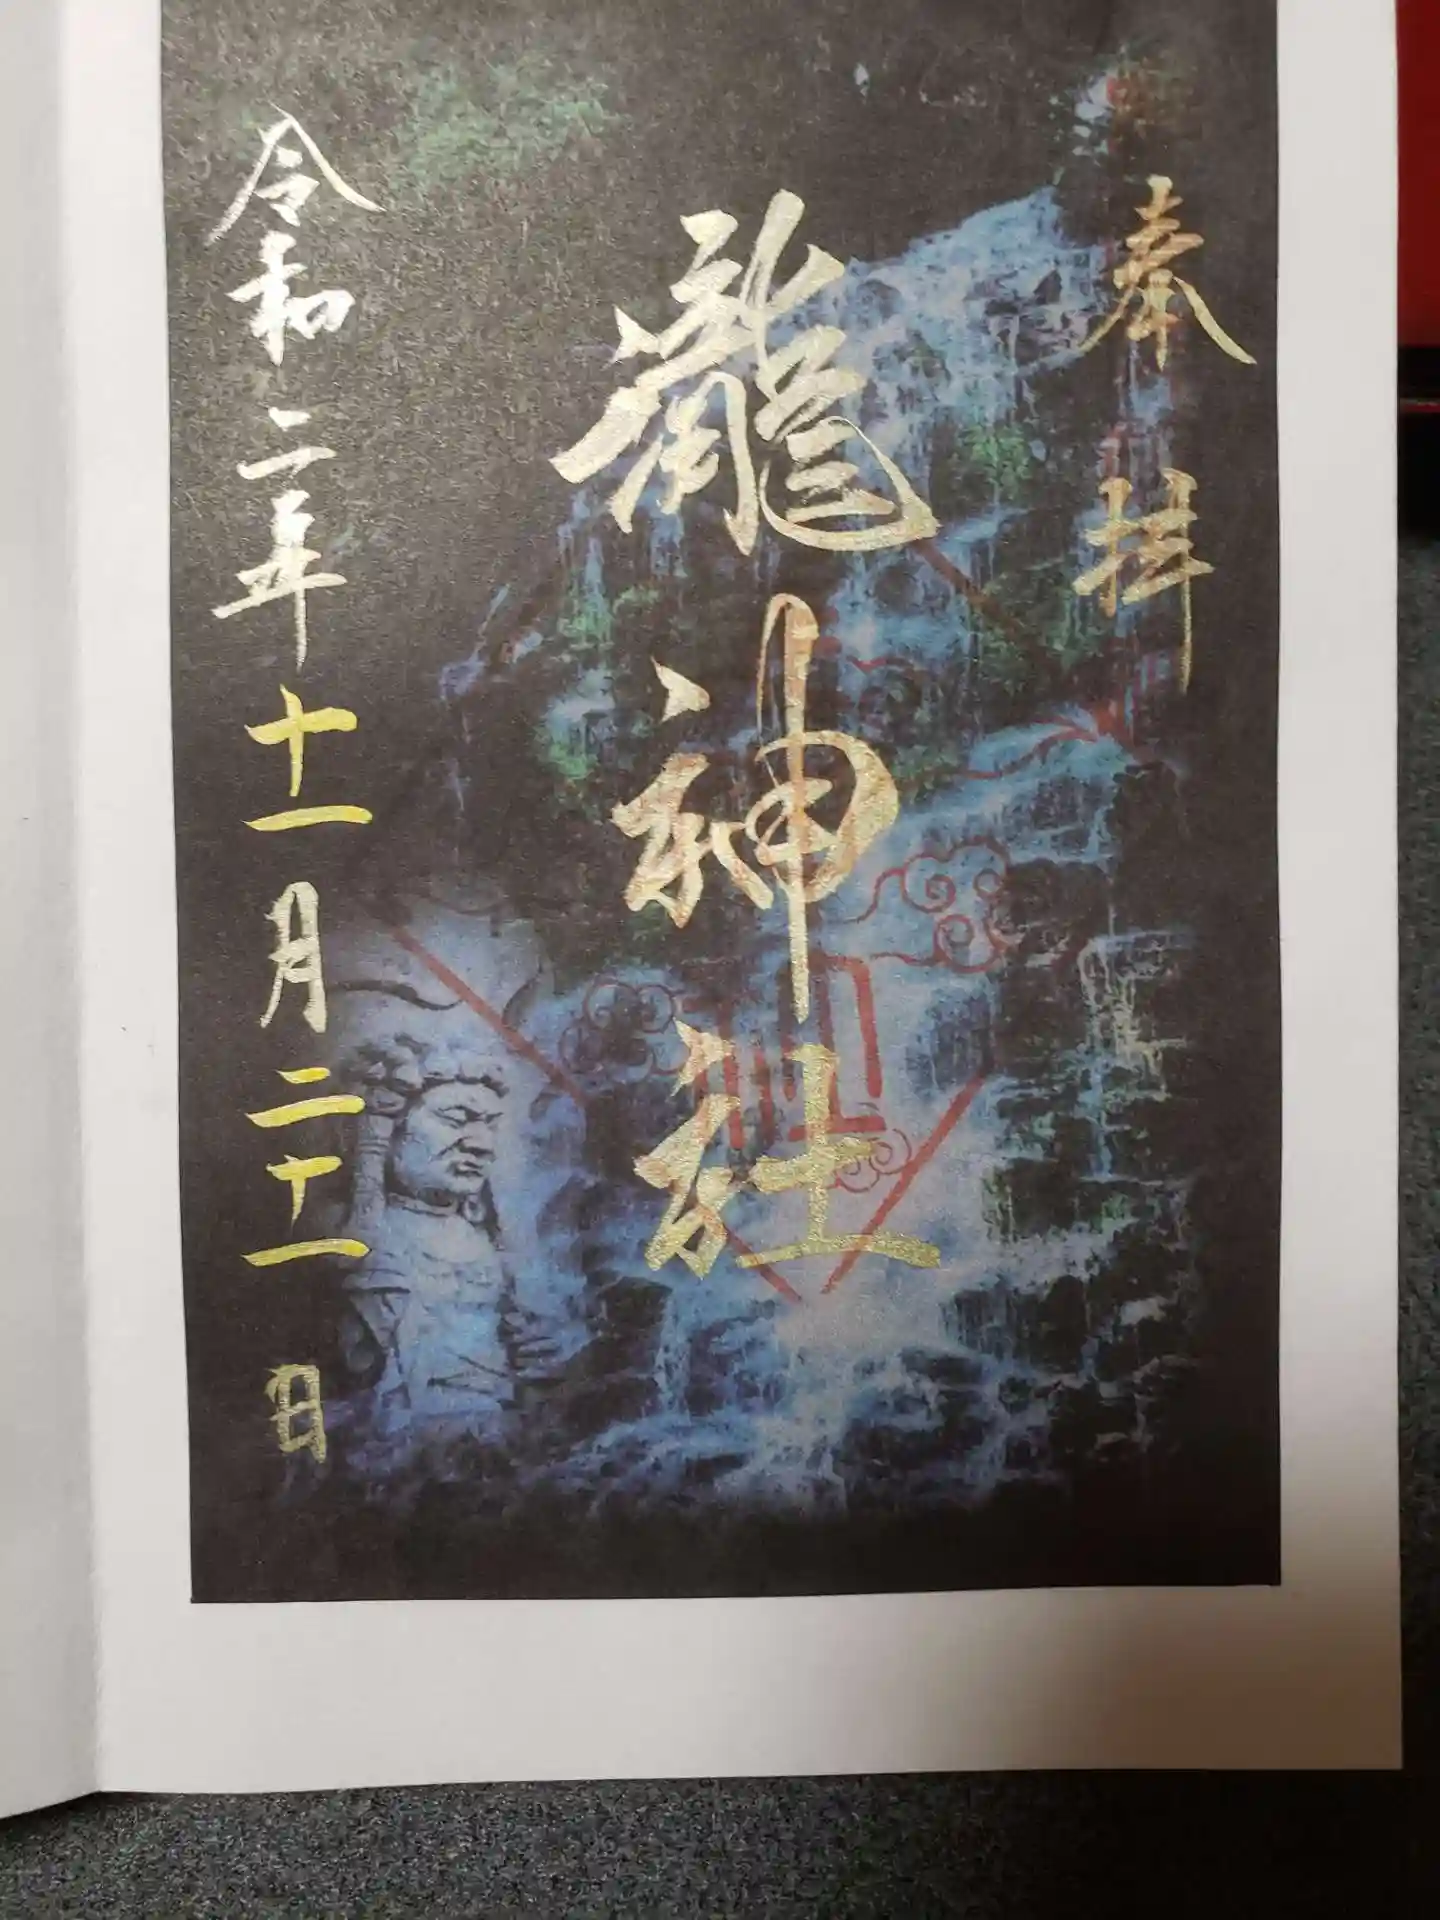 奉拝
龍神社
令和二年十一月二十一日